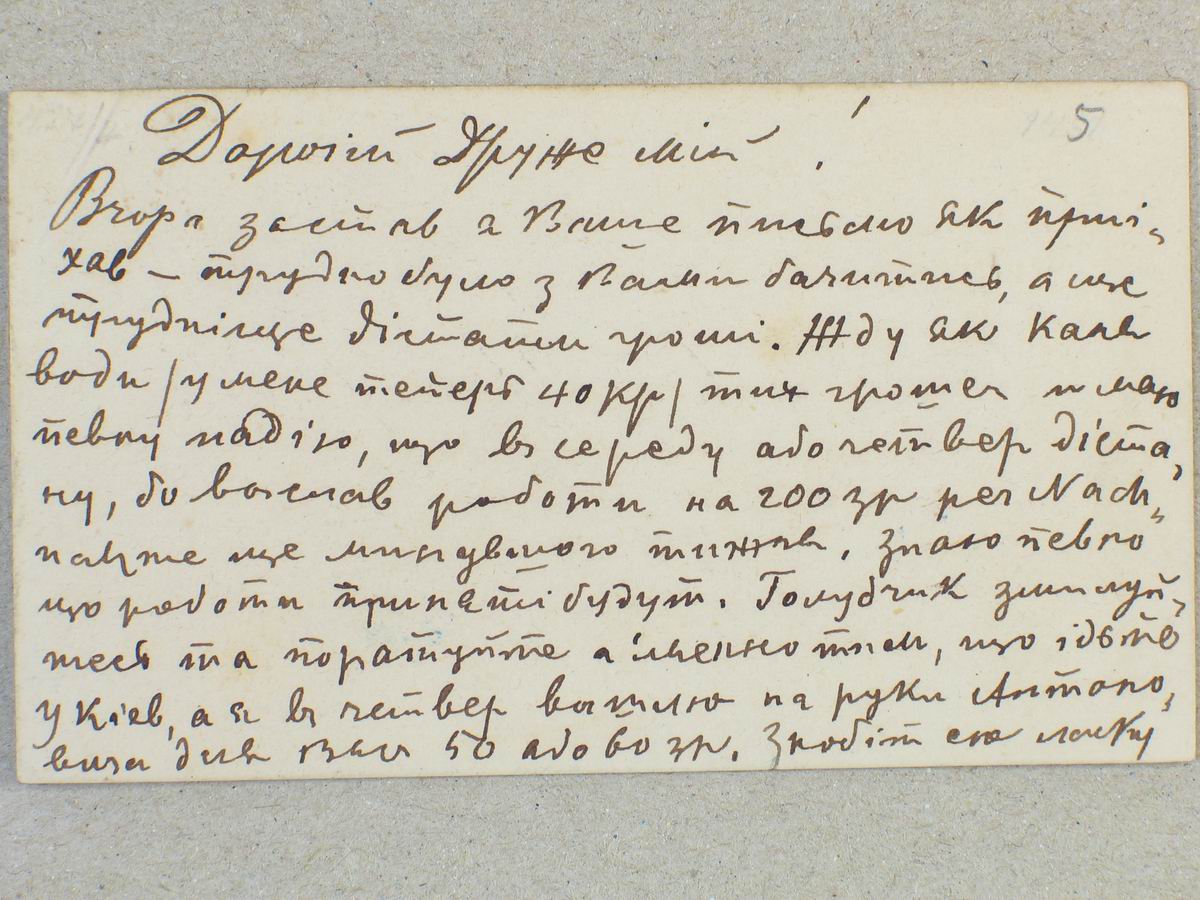 5
Дорогій Друже мій !
Вчора застав я Ваше письмо як приі-
хав — трудно було з Вами бачитись, а ще
трудніще дістати гроші. Жду як каня
води /у мене теперь 40 кр/ тих грошей и маю
певну надію, що въ середу або четвер діста-
ну, бо вислав роботи на 200 зр per Nach-
nahme ще минувшого тижня. Знаю певно
що роботи приняті будут. Голубчик змилуй-
тесь та поратуйте а іменно тим, що ідьте
у Кіев, а я въ четвер вишлю на руки Антоно-
вича для Вас 50 або 60 зр. Зробіт сю ласку